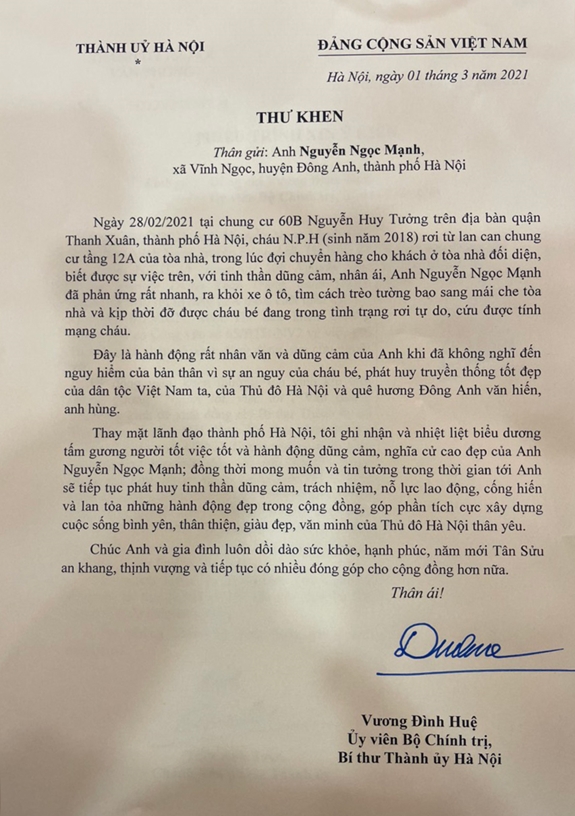 THÀNH UỶ HÀ NỘI
*
ĐẢNG CỘNG SẢN VIỆT NAM
Hà Nội, ngày 01 tháng 3 năm 2021
THƯ KHEN
Thân gửi: Anh Nguyễn Ngọc Mạnh,
xã Vĩnh Ngọc, huyện Đông Anh, thành phố Hà Nội
Ngày 28/02/2021 tại chung cư 60B Nguyễn Huy Tưởng trên địa bàn quận
Thanh Xuân, thành phố Hà Nội, cháu N.P.H (sinh năm 2018) rơi từ lan can chung
cư tầng 12A của tòa nhà, trong lúc đợi chuyển hàng cho khách ở tòa nhà đối diện,
biết được sự việc trên, với tinh thần dũng cảm, nhân ái, Anh Nguyễn Ngọc Mạnh
đã phản ứng rất nhanh, ra khỏi xe ô tô, tìm cách trèo tường bao sang mái che tòa
nhà và kịp thời đỡ được cháu bé đang trong tình trạng rơi tự do, cứu được tính
mạng cháu.
Đây là hành động rất nhân văn và dũng cảm của Anh khi đã không nghĩ đến
nguy hiểm của bản thân vì sự an nguy của cháu bé, phát huy truyền thống tốt đẹp
của dân tộc Việt Nam ta, của Thủ đô Hà Nội và quê hương Đông Anh văn hiến,
anh hùng.
Thay mặt lãnh đạo thành phố Hà Nội, tôi ghi nhận và nhiệt liệt biểu dương
tấm gương người tốt việc tốt và hành động dũng cảm, nghĩa cử cao đẹp của Anh
Nguyễn Ngọc Mạnh; đồng thời mong muốn và tin tưởng trong thời gian tới Anh
sẽ tiếp tục phát huy tinh thần dũng cảm, trách nhiệm, nỗ lực lao động, cống hiến
và lan tỏa những hành động đẹp trong cộng đồng, góp phần tích cực xây dựng
cuộc sống bình yên, thân thiện, giàu đẹp, văn minh của Thủ đô Hà Nội thân yêu.
Chúc Anh và gia đình luôn dồi dào sức khỏe, hạnh phúc, năm mới Tân Sửu
an khang, thịnh vượng và tiếp tục có nhiều đóng góp cho cộng đồng hơn nữa.
Thân ái!
Vương Đình Huệ
Ủy viên Bộ Chính trị,
Bí thư Thành ủy Hà Nội